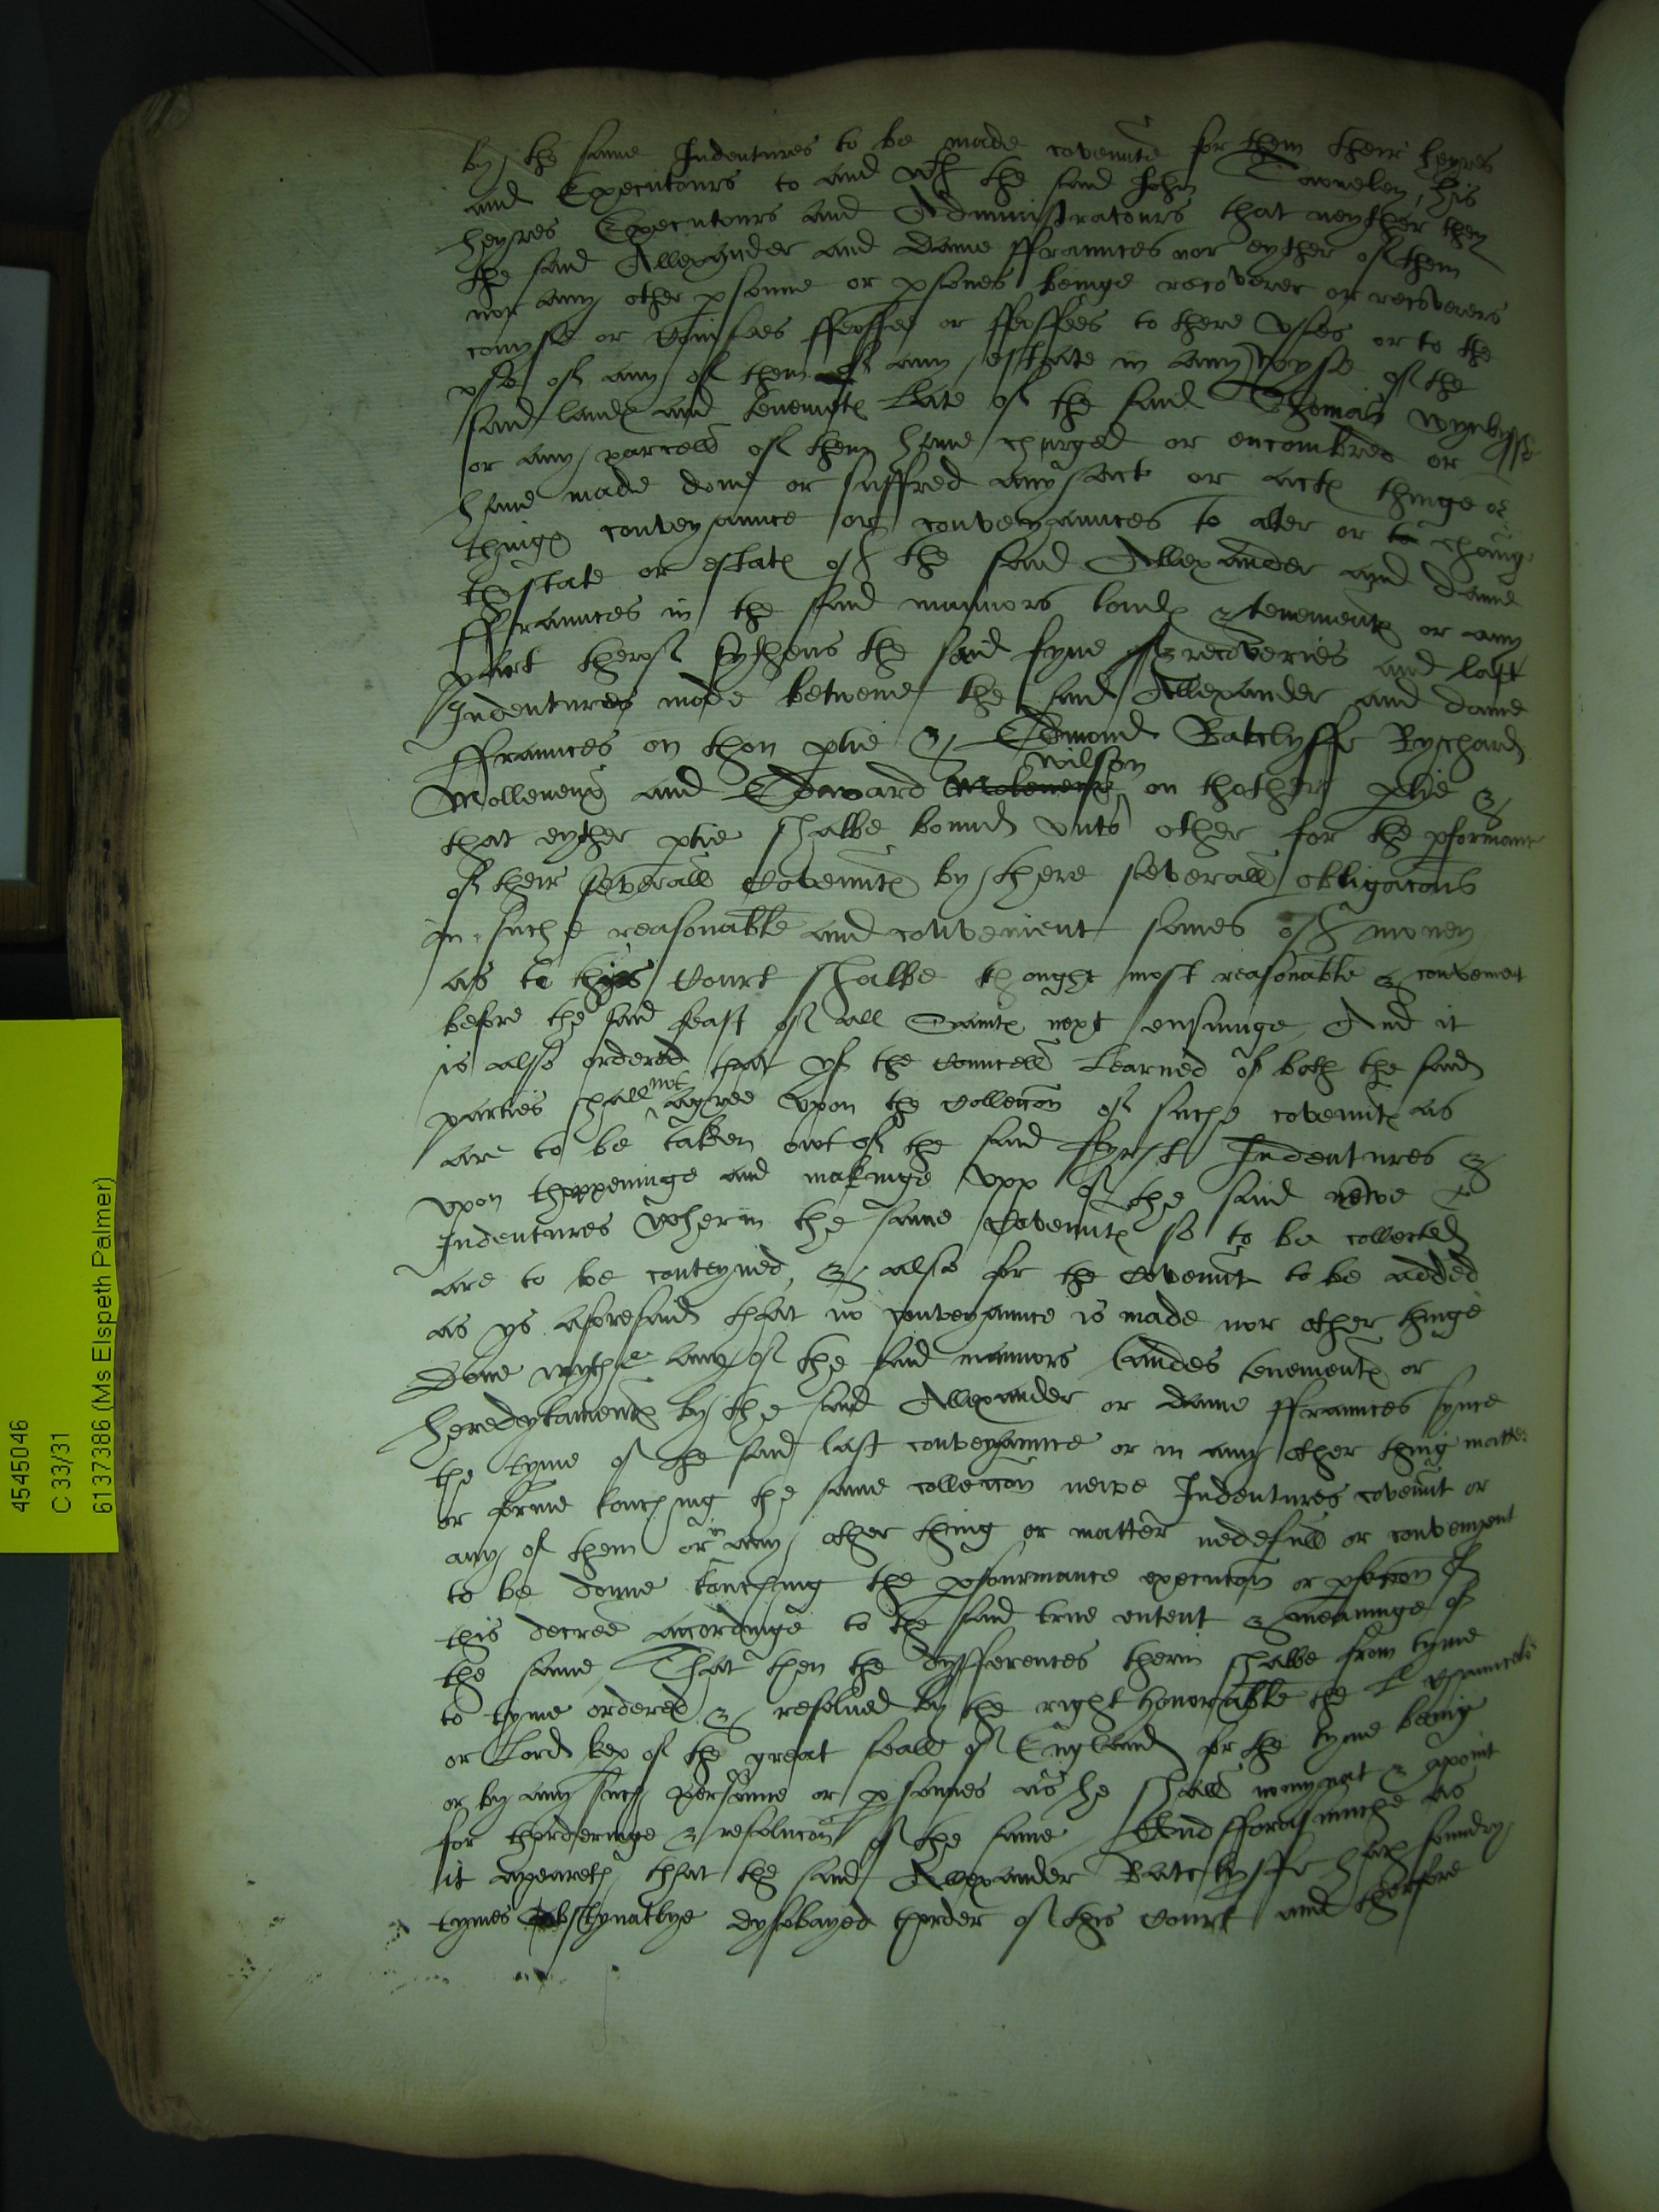 by the same Indentures to be made covennte for them their heyres
and Executours to and wth the said John Towneley his
heyres Executours and Administratours that neyther they
the said Allexander and dame ffraunces nor eyther of them
nor any other psonne or psones beinge recoverer or recoverers
conyse or Conisees ffeoffee or ffeoffees to there vses or to the
vse of any of them of any estate in any wyse of the
said landes and tenemtes Late of the said Thomas wymbysshe
or any parcell of them have charged or encombred or
have made done or suffred any acte or actes thinge or
thinges conveyaunce or conveyaunces to alter or to chaunge
thestate or estates of the said Allexander and dame
ffraunces in the said mannors landes & tenementes or any
part therof sythens the said fyne & recoveries and last
Indentures made betwene the said Allexander and dame
ffraunces on thon ptie & Edmond Ratclyffe Rychard
wilson
Molleneux and Edward Moleneux on thother ptie &
that eyther ptie shalbe bound vnto other for the pformance
of their severall Covenntes by there severall obligacons
in suche reasonable and convenient somes of money
as to this Court shalbe thought most reasonable & convenient
before the said feast of all Saintes next ensuinge And it
is also ordered that yf the Councell Learned of both the said
not
parties shall agree vpon the Colleccon of suche covenntes as
are to be taken owt of the said fyrst Indentures &
vpon thoppeninge and makinge vpp of the said newe
Indentures wherin the same Covenntes so to be collected
are to be conteyned & also for the Covennt to be added
as ys aforesaid that no conveyaunce is made nor other thinge
done wythe any of the said mannors landes tenementes or
heredytamentes by the said Allexander or dame ffraunces synce
the tyme of the said last conveyaunce or in any other thing matter
or forme touching the same colleccon newe Indentures covennt or
in
any of them or any other thing or matter nedefull or convenyent
to be donne touching the pfourmance execucon or pfeccon of
this decree accordinge to the said true entent & meaninge of
the same That then the dyfferences therin shalbe from tyme
to tyme ordered & resolued by the right honorable the L Chauncelor
or Lord kep of the great seale of England for the tyme being
or by any such personne or psonnes as he shall nomynat & apoint
for thorderinge & resolucon of the same And fforasmuche as
it apeareth that the said Allexander Ratclyffe hath sundry
tymes obstynatlye dysobayed thorder of this Court and therfore
4545046
C 33/31
6137386 (Ms Elspeth Palmer)